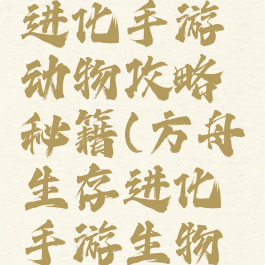 进化手游
动物攻略
秘籍(方舟
生存进化
手游生物